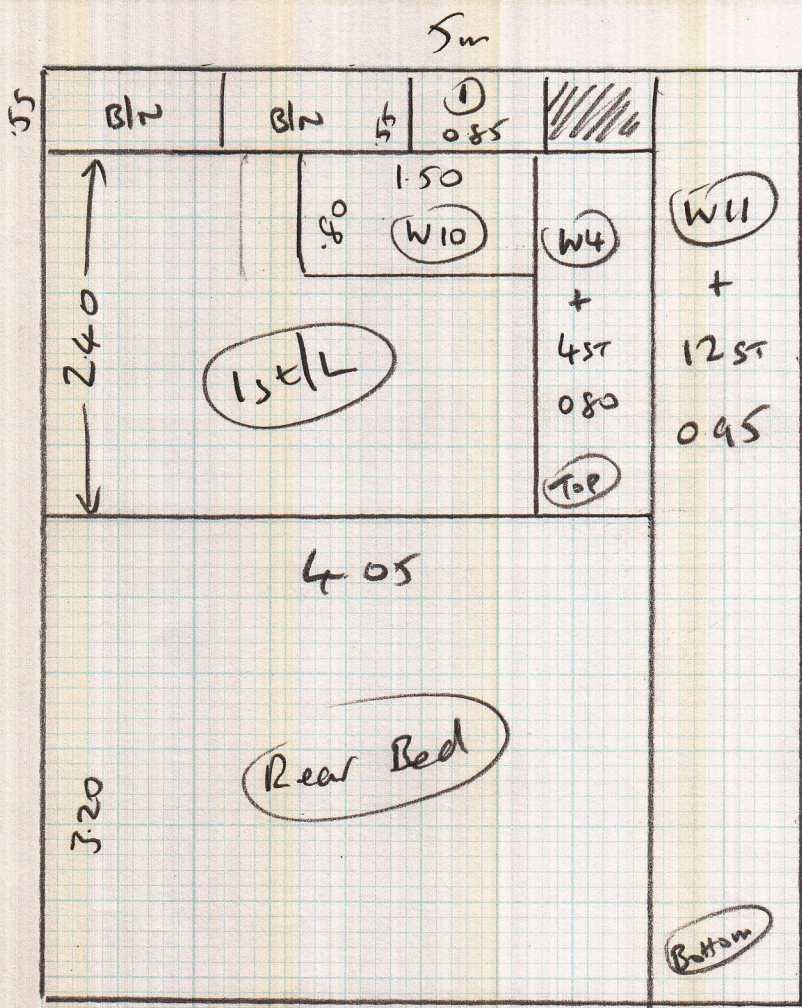 5m
.55
B/N
B/N
.55
1
0.85
1.50
.80
W10
W4
+
4ST
0.80
TOP
W11
+
12 ST
0.95
2.40
1st/L
4.05
Rear Bed
3.20
Bottom